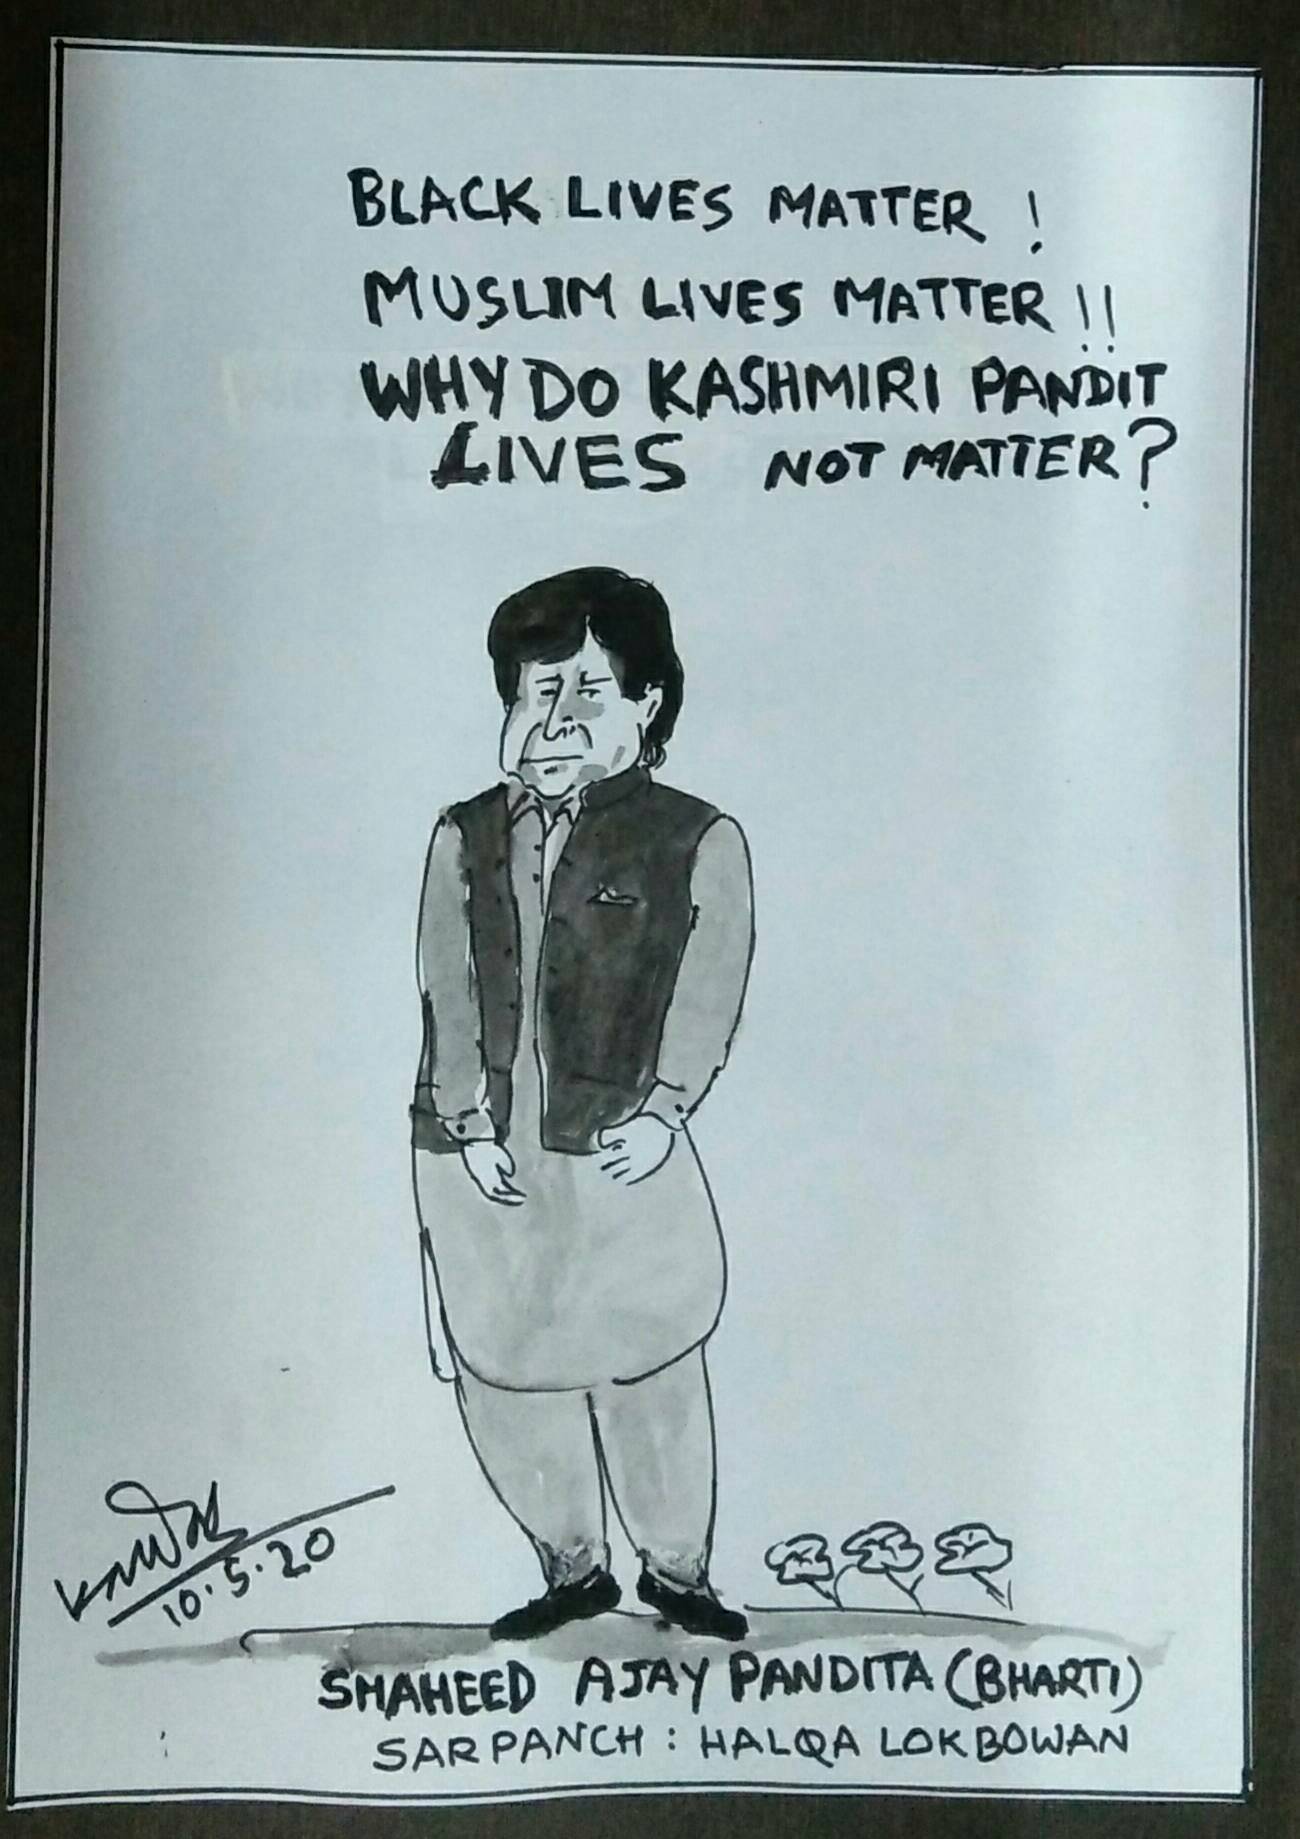 BLACK LIVES MATTER !
MUSLIM LIVES MATTER !!
WHY DO KASHMIRI PANDIT
LIVES NOT MATTER?
10.5.20
SHAHEED AJAY PANDITA (BHARTI)
SARPANCH : HALQA LOKBOWAN